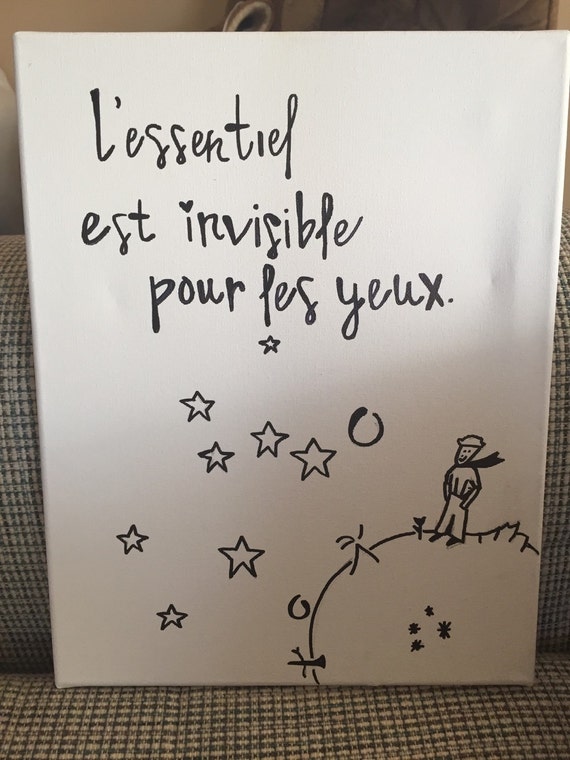 l'essentiel
est invisible
pour les yeux.